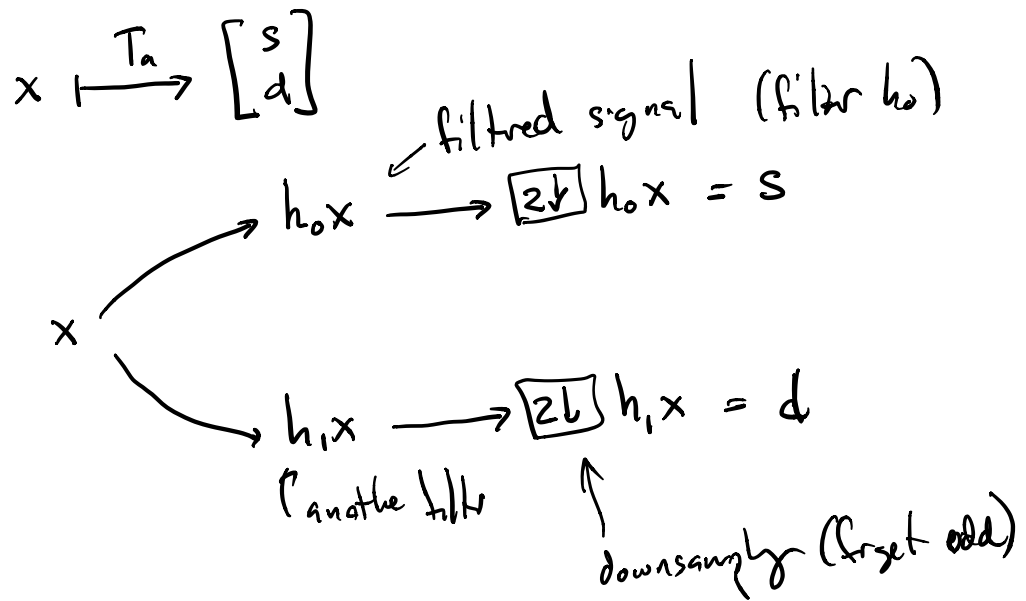 x ⟼ Tₐ [s d]
filtred signal (filter h₀)
h₀x → 2↓ h₀x = s
x
h₁x → 2↓ h₁x = d
anothe filtr
downsamply (frget odd)